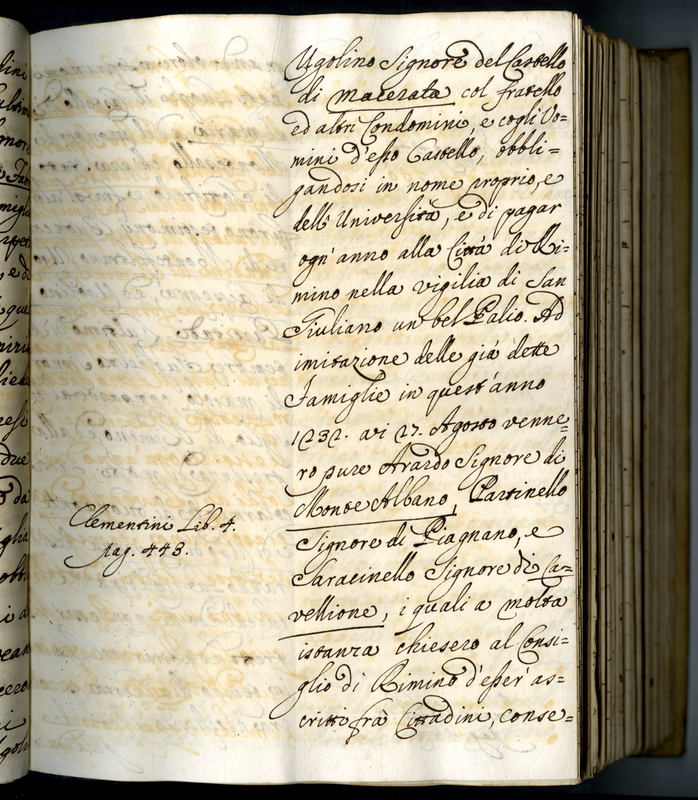 Ugolino Signore del Castello
di Macerata col fratello
ed altri Condomini, e cogli Uo=
mini d'esso Castello, obbli=
gandosi in nome proprio, e
dell'Università, e di pagar
ogn'anno alla Città di Ri=
mino nella vigilia di San
Giuliano un bel Palio. Ad
imitazione delle già dette
Famiglie in quest'anno
1232. ai 27. Agosto venne=
ro pure Arardo Signore di
Monte Albano, Partinello
Signore di Piagnano, e
Saracinello Signore di Ca=
vellione, i quali a molta
istanza chiesero al Consi=
glio di Rimino d'esser as=
critti frà Cittadini, conse=
Clementini Lib. 4.
pag. 443.